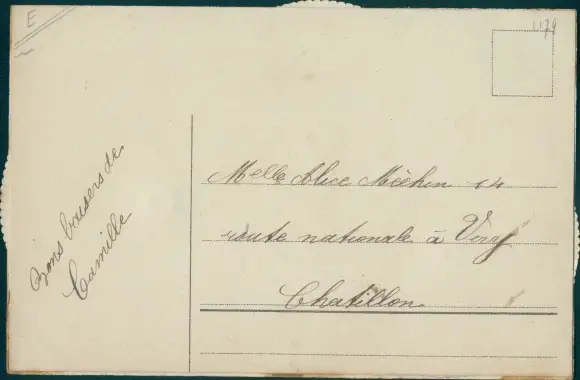 E
1179
Bons baisers de
Camille
Melle Alice Méchin 14
route nationale à Viry
Chatillon